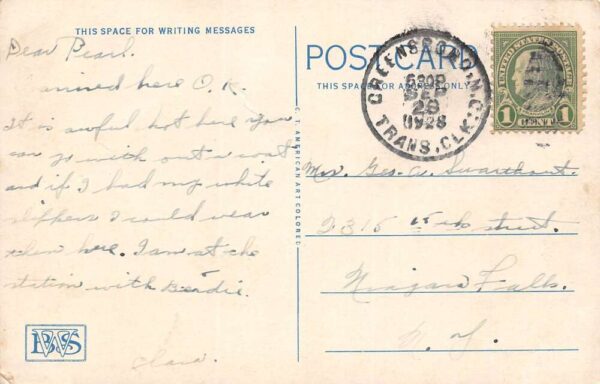 THIS SPACE FOR WRITING MESSAGES
Dear Pearl.
arrived here O.K.
It is awful hot here you
can go with out a coat
and if I had my white
slippers I could wear
them here. I am at the
station with Birdie.
Clara.
BWS
C. T. AMERICAN ART COLORED
POST CARD
THIS SPACE FOR ADDRESS ONLY
GREENSBORO, N.C.
630P
SEP
28
1928
TRANS. CLK.
UNITED STATES POSTAGE
1 CENT 1
Mrs. Geo. W. Swarthout.
2315 15th street.
Niagara Falls.
N. Y.